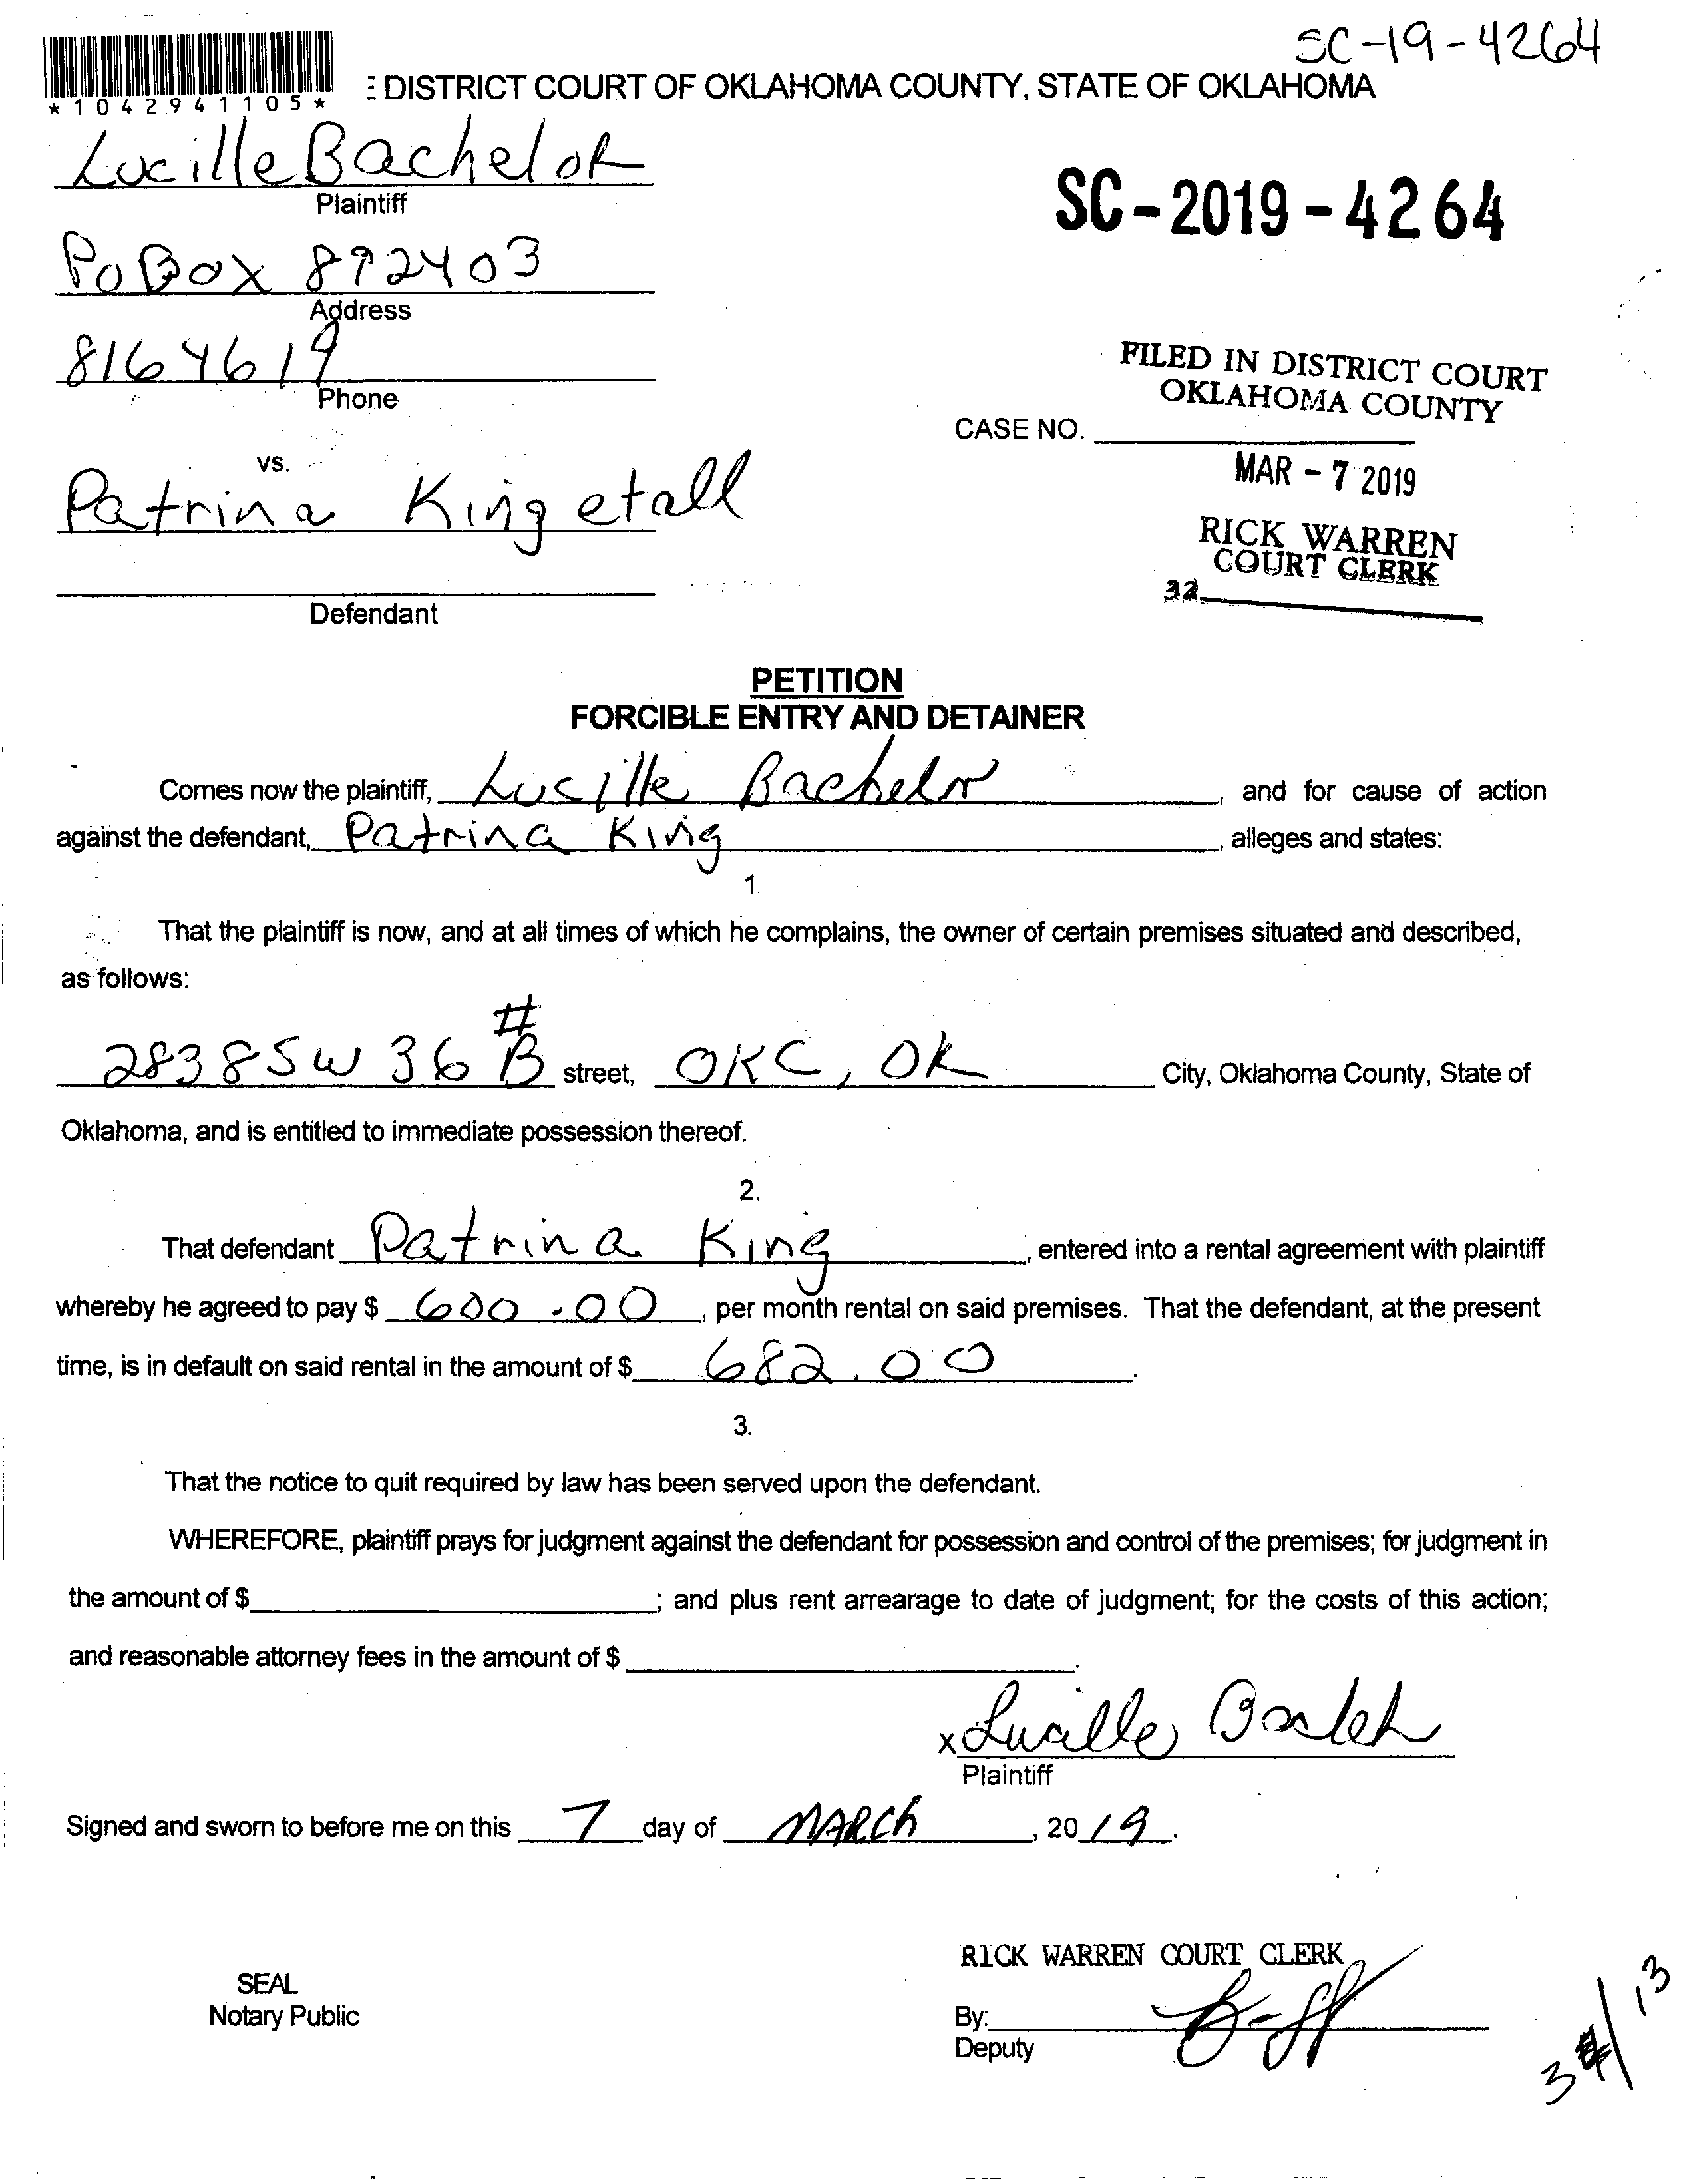 SC-19-4264
*1042941105*
E DISTRICT COURT OF OKLAHOMA COUNTY, STATE OF OKLAHOMA
Lucille Bachelor
Plaintiff
SC-2019-4264
PO Box 892403
Address
8164619
Phone
FILED IN DISTRICT COURT
OKLAHOMA COUNTY
CASE NO.
MAR - 7 2019
vs.
Patrina King etall
RICK WARREN
COURT CLERK
32
Defendant
PETITION
FORCIBLE ENTRY AND DETAINER
Comes now the plaintiff, Lucille Bachelor, and for cause of action
against the defendant, Patrina King, alleges and states:
1.
That the plaintiff is now, and at all times of which he complains, the owner of certain premises situated and described,
as follows:
2838 SW 36 #B street, OKC, OK City, Oklahoma County, State of
Oklahoma, and is entitled to immediate possession thereof.
2.
That defendant Patrina King, entered into a rental agreement with plaintiff
whereby he agreed to pay $ 600.00, per month rental on said premises. That the defendant, at the present
time, is in default on said rental in the amount of $ 682.00.
3.
That the notice to quit required by law has been served upon the defendant.
WHEREFORE, plaintiff prays for judgment against the defendant for possession and control of the premises; for judgment in
the amount of $ ; and plus rent arrearage to date of judgment; for the costs of this action;
and reasonable attorney fees in the amount of $ .
x Lucille Bachelor
Plaintiff
Signed and sworn to before me on this 7 day of MARCH, 2019.
RICK WARREN COURT CLERK
SEAL
Notary Public
By:
Deputy